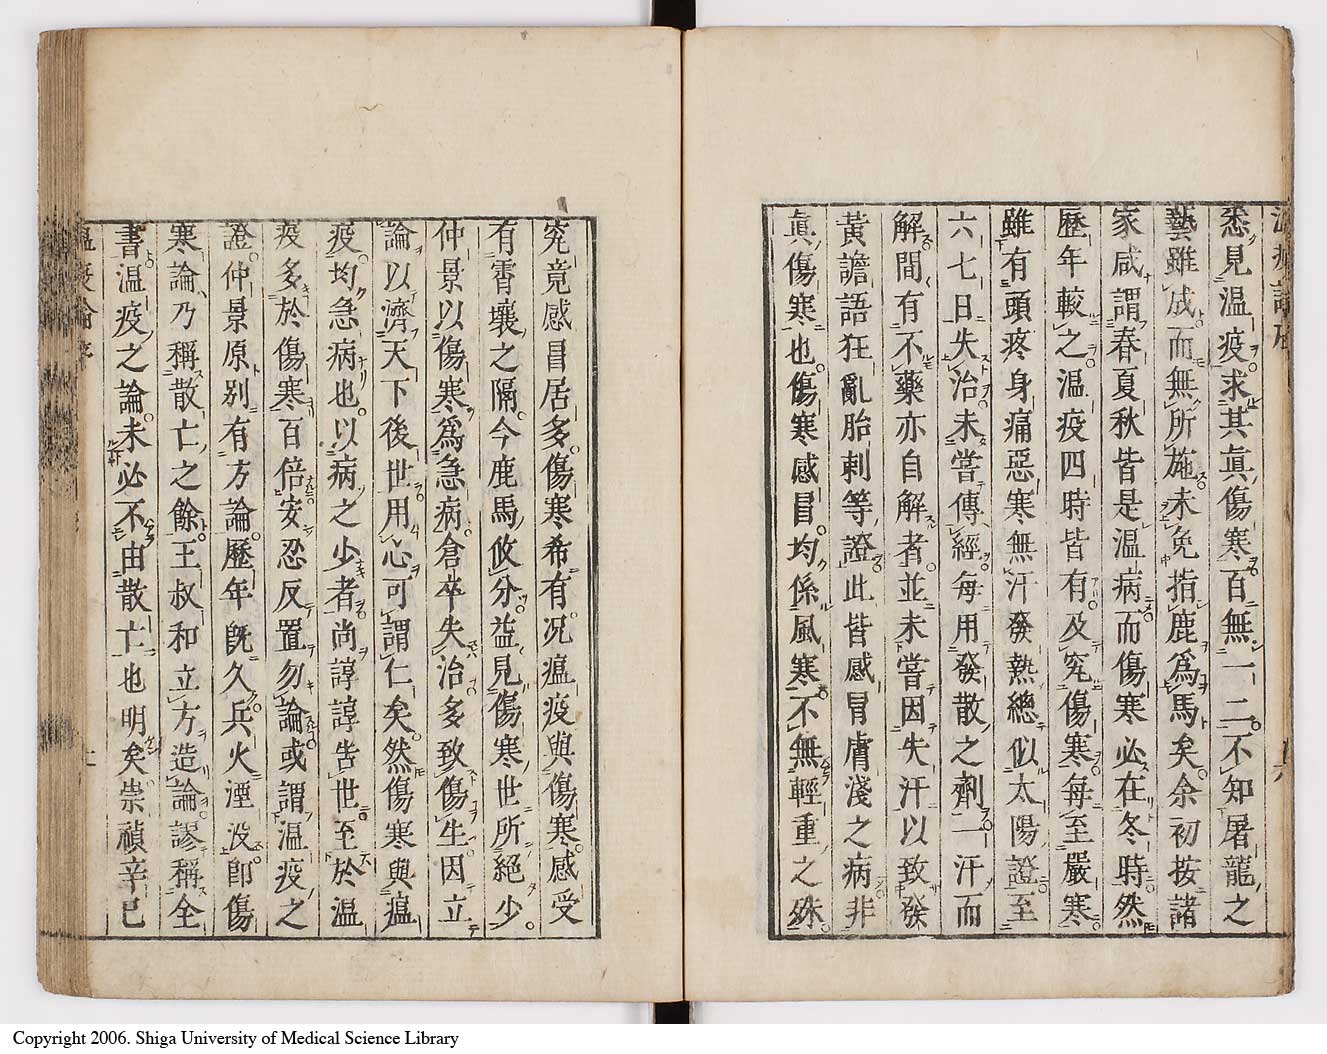 悉見温疫求其眞傷寒百無一二不知屠龍之
藝雖成而無所施未免指鹿爲馬矣余初按諸
家咸謂春夏秋皆是温病而傷寒必在冬時然
歷年較之温疫四時皆有及究傷寒每至嚴寒
雖有頭疼身痛惡寒無汗發熱總似太陽證至
六七日失治未嘗傳經每用發散之劑一汗而
解間有不藥亦自解者並未嘗因失汗以致發
黄譫語狂亂胎刺等證此皆感冒膚淺之病非
眞傷寒也傷寒感冒均係風寒不無輕重之殊
究竟感冒居多傷寒希有况瘟疫與傷寒感受
有霄壤之隔今鹿馬攸分益見傷寒世所絕少
仲景以傷寒爲急病倉卒失治多致傷生因立
論以濟天下後世用心可謂仁矣然傷寒與瘟
疫均急病也以病之少者尚諄諄告世至於温
疫多於傷寒百倍安忍反置勿論或謂温疫之
證仲景原别有方論歷年旣久兵火湮没卽傷
寒論乃稱散亡之餘王叔和立方造論謬稱全
書温疫之論未必不由散亡也明矣崇禎辛巳
Copyright 2006. Shiga University of Medical Science Library